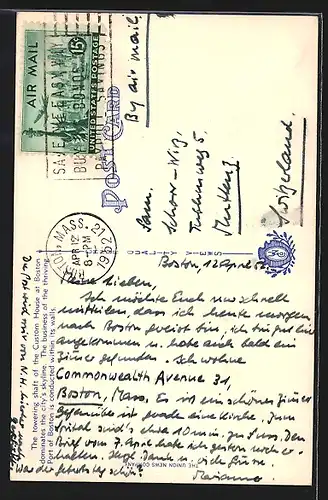 AIR MAIL
15¢
UNITED STATES POSTAGE
SAVE THE EASY WAY
BUY BONDS
PAY SAVINGS
By air mail
POST CARD
BOSTON, MASS. 21
APR 12
8 - PM
1952
Fam.
Schorr-Wirz,
5.
Muttenz
Switzerland.
The towering shaft of the Custom House at Boston
dominates the city's skyline. The business of the thriving
port of Boston is conducted within its walls.
THE UNION NEWS COMPANY
Boston, 12 April 52
Meine Lieben,
Ich möchte Euch nur schnell
mitteilen, dass ich heute morgen
nach Boston gereist bin, ich bin gut
angekommen u. habe auch bald ein
Zimmer gefunden. Ich wohne
Commonwealth Avenue 31,
Boston, Mass. Es ist ein schönes Zimmer
Gegenüber ist gerade eine Kirche. Zum
Spital sind's etwa 10 min. zu Fuss. Den
Brief vom 7. April habe ich gestern noch er-
halten. Dank u. viele Grüsse
War der Geburtstag schön?
Marianne